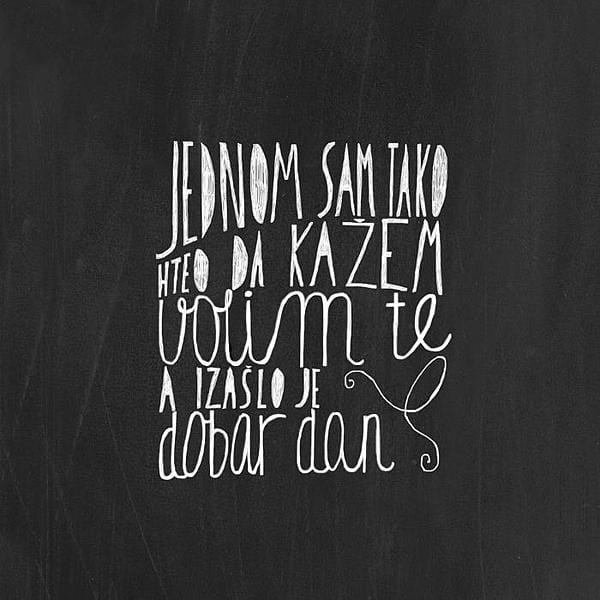 JEDNOM SAM TAKO
HTEO DA KAŽEM
volim te
A IZAŠLO JE
dobar dan